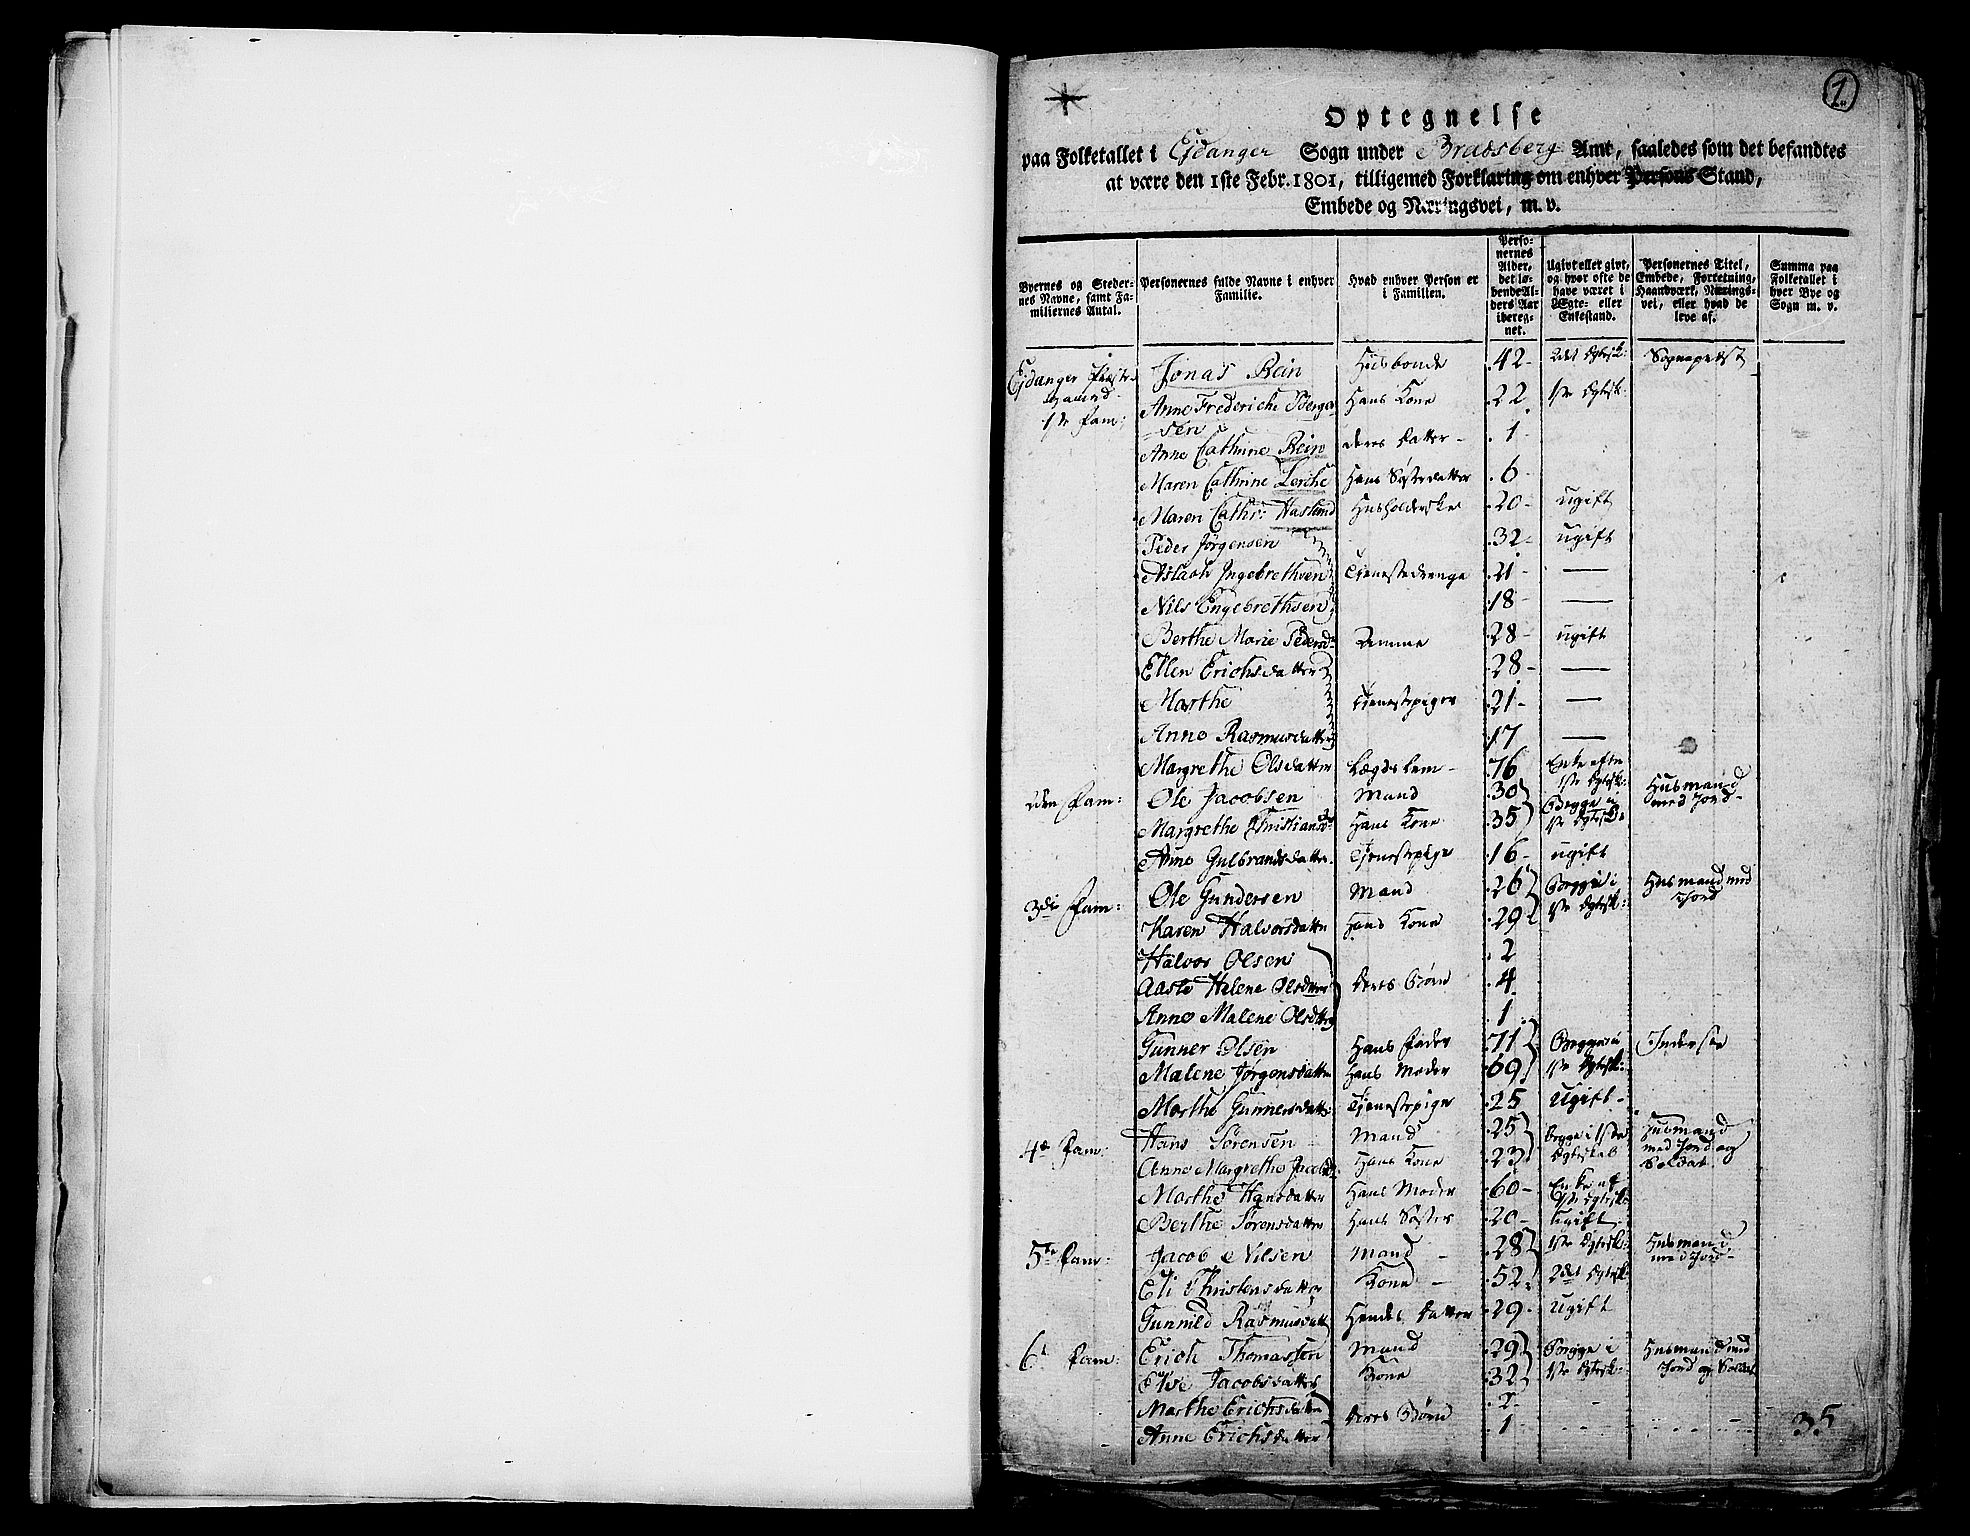 1
Optegnelse
paa Folketallet i Ejdanger Sogn under Bradsberg Amt, saaledes som det befandtes
at være den 1ste Febr. 1801, tilligemed Forklaring om enhver Persons Stand,
Embede og Næringsvei, m. v.
Byernes og Steder-nes Navne, samt Fa-miliernes Antal. Personernes fulde Navne i enhver Familie. Hvad enhver Person er i Familien. Perso-nernes Alder, det lø-bende Al-ders Aar iberegnet. Ugivt eller givt, og hvor ofte de have været i Egte- eller Enkestand. Personernes Titel, Embede, Forretning, Haandværk, Nærings-vei, eller hvad de leve af. Summa paa Folketallet i hver Bye og Sogn m. v.
Ejdanger Præste- Jonas Rein Husbonde 42 2det Egtesk: Sognepræst
gaard
1ste Fam: Anne Frederiche Bergen- Hans Kone 22 1ste Egtesk:
sen
Anne Cathrine Rein deres Datter 1
Maren Cathrine Lerche Hans Søsterdatter 6
Maren Cathr: Haslund Husholderske 20 ugift
Peder Jørgensen 32 ugift
Aslach Ingebrethsen Tjenestedrenge 21 —
Nils Engebrethsen 18 —
Berthe Marie Pedersd: Amme 28 ugift
Ellen Erichsdatter 28 —
Marthe Tjenestepiger 21 —
Anne Rasmusdatter 17 —
Margrethe Olsdatter Lægdslem 76 Enke efter 1ste Egtesk:
2den Fam: Ole Jacobsen Mand 30 Begge i Husmand
Margrethe Christiansd: Hans Kone 35 1ste Egtesk: med Jord
Anne Gulbrandsdatter Tjenestepige 16 ugift
3die Fam: Ole Gundersen Mand 26 Begge i Husmand med
Karen Halvorsdatter Hans Kone 29 1ste Egtesk: Jord
Halvor Olsen 2
Aaste Helene Olsdatter deres Børn 4
Anne Malene Olsdatter 1
Gunner Olsen Hans Fader 71 Begge i Inderste
Malene Jørgensdatter Hans Moder 69 1ste Egtesk:
Marthe Gunnersdatter Tjenestepige 25 Ugift
4de Fam: Hans Sørensen Mand 25 Begge i 1ste Husmand
Anne Margrethe Jacobsd: Hans Kone 23 Egteskab med Jord og Soldat.
Marthe Hansdatter Hans Moder 60 Enke af 1ste Egtesk:
Berthe Sørensdatter Hans Søster 20 Ugift
5te Fam: Jacob Nilsen Mand 28 1ste Egtesk: Husmand
Eli Christensdatter Kone 52 2det Egtesk: med Jord
Gunnild Rasmusdatt: Hendes Datter 29 Ugift
6te Fam: Erich Thomassen Mand 29 Begge i Husmand med
Else Jacobsdatter Kone 32 1ste Egtesk: Jord og Soldat
Marthe Erichsdatter 2
Anne Erichsdatter deres Børn 1 35